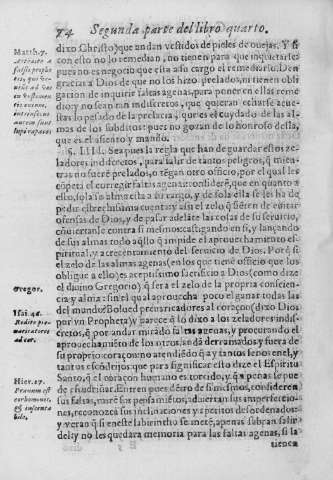 74 Segunda parte del libro quarto.
dixo Christo) que andan vestidos de pieles de ouejas. Y si
con esto no lo remedian, no tienen para que inquietarse
pues no es negocio que esta a su cargo el remediarlo. Den
gracias a Dios de que no los hizo prelados, ni tienen obli
gacion de inquirir faltas agenas, para poner en ellas reme
dio, y no sean tan indiscretos, que quieran echarse a
estas lo pesado de la prelacia, que es el cuydado de las al
mas de los subditos: pues no gozan de lo honroso della,
que es el asiento y mando.
§. IIII. Sea pues la regla que han de guardar estos ze
ladores indiscretos, para salir de tantos peligros, q̃ mien
tras no fuere prelados, o tẽgan otro officio, por el qual les
cõpeta el corregir faltas agenas: considerẽ, que en quanto a
esto, sola su alma esta a su cargo, y de sola ella se les ha de
pedir estrechissima cuenta: y assi el zelo q̃ tienẽ de euitar
ofensas de Dios, y de passar adelãte las cosas de su seruicio,
cõuiertanle contra si mesmos: castigando en si, y lançando
de sus almas todo aq̃llo q̃ impide el aprouechamiento es
piritual, y acrecentamiento del seruicio de Dios. Porq̃ si
el zelo de las almas agenas (en los que tiene officio que los
obligue a ello) es aceptissimo sacrificio a Dios (como dize
el diuino Gregorio) q̃ sera el zelo de la propria conscien
cia y alma: sin el qual aprouecha poco el ganar todas las
del mundo? Bolued preuaricadores al coraçon (dixo Dios
por vn Propheta) y parece q̃ lo dixo a los zeladores indis
cretos, q̃ por andar mirãdo faltas agenas, y procurando el
aprouechamiẽto de los otros, andã derramados y fuera de
su proprio coraçon no atendiẽdo q̃ ay tantos senos enel, y
tantos escõdrijos: que para significar esto dize el Espiritu
Santo, q̃ el coraçon humano es torcido, y q̃ a penas se pue
de escudriñar. Entren pues dẽtro de si mismos, consideren
sus faltas, mirẽ sus pensamiẽtos, aduiertan sus imperfectio
nes, reconozcã sus inclinaciones y apetitos desordenados:
y veran q̃ si en este labirintho se mete, apenas sabran salir
del: y no les quedara memoria para las faltas agenas, si la
tienen
Matth. 7.
Gregor.
Isai. 46.
Hier. 17.